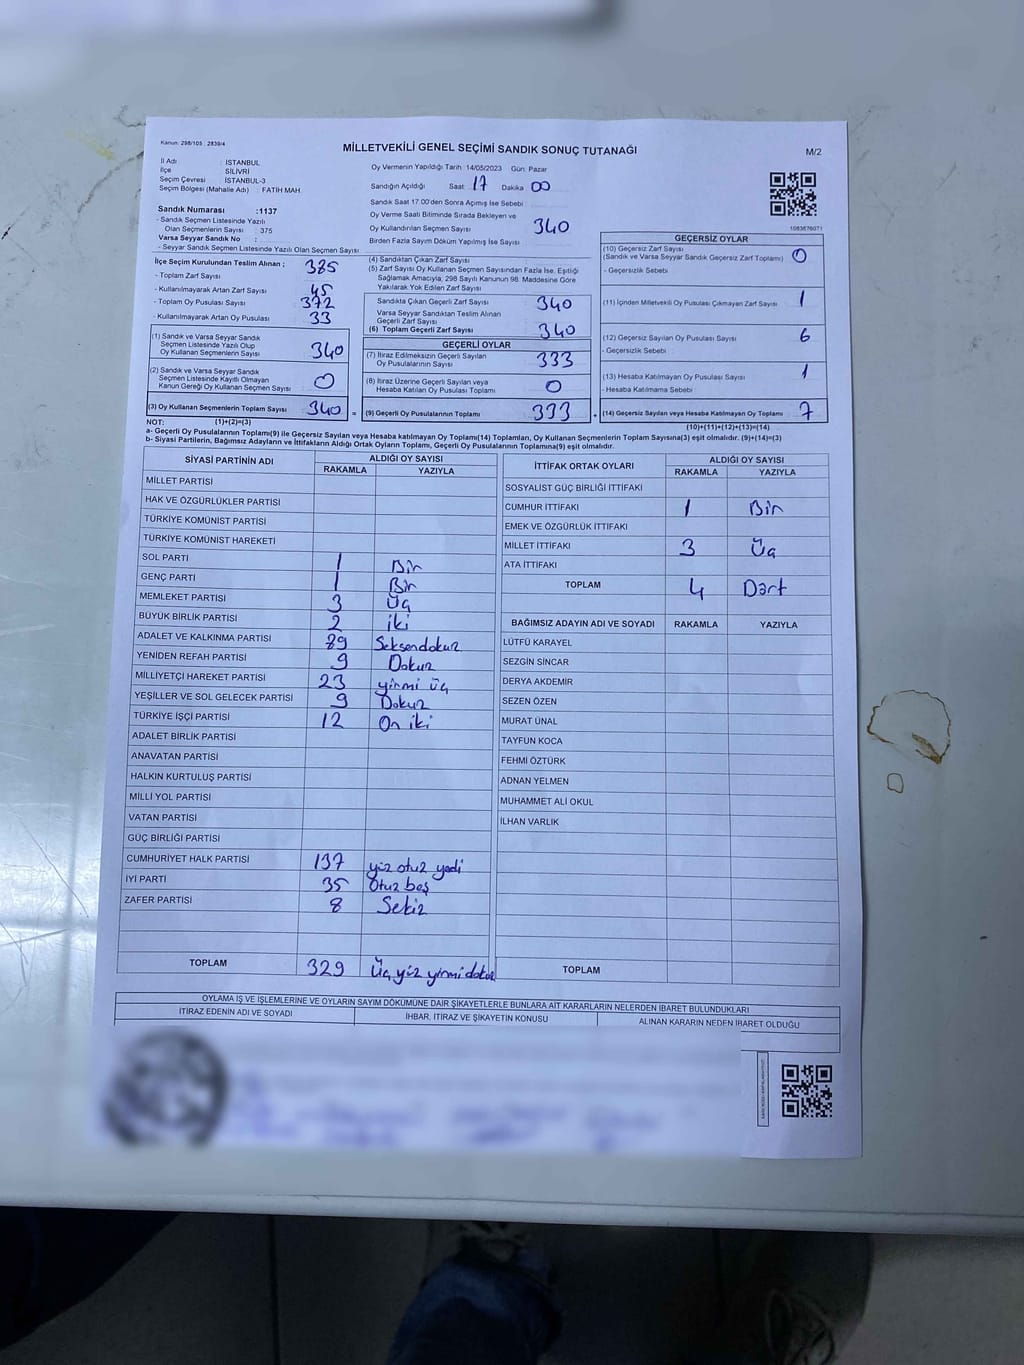 Kanun: 298/105 : 2839/4
MİLLETVEKİLİ GENEL SEÇİMİ SANDIK SONUÇ TUTANAĞI
M/2
İl Adı : İSTANBUL
İlçe : SİLİVRİ
Seçim Çevresi : İSTANBUL-3
Seçim Bölgesi (Mahalle Adı) : FATİH MAH.
Oy Vermenin Yapıldığı Tarih: 14/05/2023 Gün: Pazar
Sandığın Açıldığı Saat 17 Dakika 00
Sandık Saat 17.00'den Sonra Açılmış İse Sebebi
Oy Verme Saati Bitiminde Sırada Bekleyen ve
Oy Kullandırılan Seçmen Sayısı 340
Birden Fazla Sayım Döküm Yapılmış İse Sayısı
1083676071
Sandık Numarası :1137
- Sandık Seçmen Listesinde Yazılı
Olan Seçmenlerin Sayısı : 375
Varsa Seyyar Sandık No :
- Seyyar Sandık Seçmen Listesinde Yazılı Olan Seçmen Sayısı
İlçe Seçim Kurulundan Teslim Alınan ;
- Toplam Zarf Sayısı 385
- Kullanılmayarak Artan Zarf Sayısı 45
- Toplam Oy Pusulası Sayısı 372
- Kullanılmayarak Artan Oy Pusulası 33
(1) Sandık ve Varsa Seyyar Sandık
Seçmen Listesinde Yazılı Olup
Oy Kullanan Seçmenlerin Sayısı 340
(2) Sandık ve Varsa Seyyar Sandık
Seçmen Listesinde Kayıtlı Olmayan
Kanun Gereği Oy Kullanan Seçmen Sayısı 0
(3) Oy Kullanan Seçmenlerin Toplam Sayısı 340 =
(1)+(2)=(3)
(4) Sandıktan Çıkan Zarf Sayısı
(5) Zarf Sayısı Oy Kullanan Seçmen Sayısından Fazla İse, Eşitliği
Sağlamak Amacıyla; 298 Sayılı Kanunun 98. Maddesine Göre
Yakılarak Yok Edilen Zarf Sayısı
Sandıkta Çıkan Geçerli Zarf Sayısı 340
Varsa Seyyar Sandıktan Teslim Alınan
Geçerli Zarf Sayısı
(6) Toplam Geçerli Zarf Sayısı 340
GEÇERLİ OYLAR
(7) İtiraz Edilmeksizin Geçerli Sayılan
Oy Pusulalarının Sayısı 333
(8) İtiraz Üzerine Geçerli Sayılan veya
Hesaba Katılan Oy Pusulası Toplamı 0
(9) Geçerli Oy Pusulalarının Toplamı 333 +
GEÇERSİZ OYLAR
(10) Geçersiz Zarf Sayısı
(Sandık ve Varsa Seyyar Sandık Geçersiz Zarf Toplamı) 0
- Geçersizlik Sebebi :
(11) İçinden Milletvekili Oy Pusulası Çıkmayan Zarf Sayısı 1
(12) Geçersiz Sayılan Oy Pusulası Sayısı 6
- Geçersizlik Sebebi :
(13) Hesaba Katılmayan Oy Pusulası Sayısı 1
- Hesaba Katılmama Sebebi :
(14) Geçersiz Sayılan veya Hesaba Katılmayan Oy Toplamı 7
(10)+(11)+(12)+(13)=(14)
NOT:
a- Geçerli Oy Pusulalarının Toplamı(9) ile Geçersiz Sayılan veya Hesaba katılmayan Oy Toplamı(14) Toplamları, Oy Kullanan Seçmenlerin Toplam Sayısına(3) eşit olmalıdır. (9)+(14)=(3)
b- Siyasi Partilerin, Bağımsız Adayların ve İttifakların Aldığı Ortak Oyların Toplamı, Geçerli Oy Pusulalarının Toplamına(9) eşit olmalıdır.
SİYASİ PARTİNİN ADI ALDIĞI OY SAYISI
RAKAMLA YAZIYLA
MİLLET PARTİSİ
HAK VE ÖZGÜRLÜKLER PARTİSİ
TÜRKİYE KOMÜNİST PARTİSİ
TÜRKİYE KOMÜNİST HAREKETİ
SOL PARTİ 1 Bir
GENÇ PARTİ 1 Bir
MEMLEKET PARTİSİ 3 Üç
BÜYÜK BİRLİK PARTİSİ 2 iki
ADALET VE KALKINMA PARTİSİ 89 Seksendokuz
YENİDEN REFAH PARTİSİ 9 Dokuz
MİLLİYETÇİ HAREKET PARTİSİ 23 yirmi üç
YEŞİLLER VE SOL GELECEK PARTİSİ 9 Dokuz
TÜRKİYE İŞÇİ PARTİSİ 12 On iki
ADALET BİRLİK PARTİSİ
ANAVATAN PARTİSİ
HALKIN KURTULUŞ PARTİSİ
MİLLİ YOL PARTİSİ
VATAN PARTİSİ
GÜÇ BİRLİĞİ PARTİSİ
CUMHURİYET HALK PARTİSİ 137 yüz otuz yedi
İYİ PARTİ 35 Otuz beş
ZAFER PARTİSİ 8 Sekiz
TOPLAM 329 Üç yüz yirmi dokuz
İTTİFAK ORTAK OYLARI ALDIĞI OY SAYISI
RAKAMLA YAZIYLA
SOSYALİST GÜÇ BİRLİĞİ İTTİFAKI
CUMHUR İTTİFAKI 1 Bir
EMEK VE ÖZGÜRLÜK İTTİFAKI
MİLLET İTTİFAKI 3 Üç
ATA İTTİFAKI
TOPLAM 4 Dört
BAĞIMSIZ ADAYIN ADI VE SOYADI RAKAMLA YAZIYLA
LÜTFÜ KARAYEL
SEZGİN SİNCAR
DERYA AKDEMİR
SEZEN ÖZEN
MURAT ÜNAL
TAYFUN KOCA
FEHMİ ÖZTÜRK
ADNAN YELMEN
MUHAMMET ALİ OKUL
İLHAN VARLIK
TOPLAM
OYLAMA İŞ VE İŞLEMLERİNE VE OYLARIN SAYIM DÖKÜMÜNE DAİR ŞİKAYETLERLE BUNLARA AİT KARARLARIN NELERDEN İBARET BULUNDUKLARI
İTİRAZ EDENİN ADI VE SOYADI İHBAR, İTİRAZ VE ŞİKAYETİN KONUSU ALINAN KARARIN NEDEN İBARET OLDUĞU